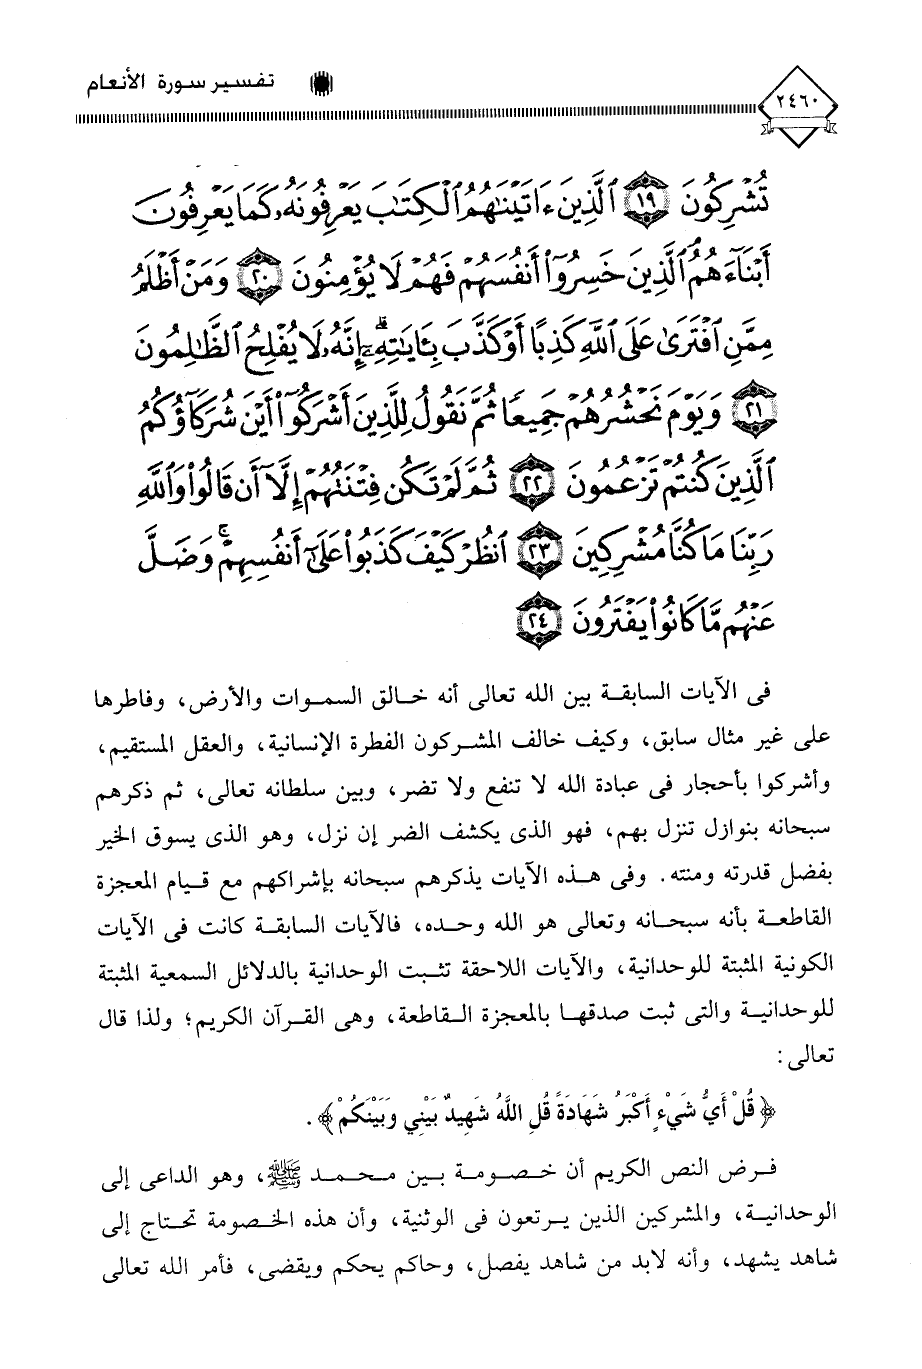 ٢٤٦٠
تفسير سورة الأنعام
تُشْرِكُونَ ﴿١٩﴾ ٱلَّذِينَ ءَاتَيْنَٰهُمُ ٱلْكِتَٰبَ يَعْرِفُونَهُۥ كَمَا يَعْرِفُونَ
أَبْنَآءَهُمُ ٱلَّذِينَ خَسِرُوٓا۟ أَنفُسَهُمْ فَهُمْ لَا يُؤْمِنُونَ ﴿٢٠﴾ وَمَنْ أَظْلَمُ
مِمَّنِ ٱفْتَرَىٰ عَلَى ٱللَّهِ كَذِبًا أَوْ كَذَّبَ بِـَٔايَٰتِهِۦٓ ۗ إِنَّهُۥ لَا يُفْلِحُ ٱلظَّٰلِمُونَ
﴿٢١﴾ وَيَوْمَ نَحْشُرُهُمْ جَمِيعًا ثُمَّ نَقُولُ لِلَّذِينَ أَشْرَكُوٓا۟ أَيْنَ شُرَكَآؤُكُمُ
ٱلَّذِينَ كُنتُمْ تَزْعُمُونَ ﴿٢٢﴾ ثُمَّ لَمْ تَكُن فِتْنَتُهُمْ إِلَّآ أَن قَالُوا۟ وَٱللَّهِ
رَبِّنَا مَا كُنَّا مُشْرِكِينَ ﴿٢٣﴾ ٱنظُرْ كَيْفَ كَذَبُوا۟ عَلَىٰٓ أَنفُسِهِمْ ۚ وَضَلَّ
عَنْهُم مَّا كَانُوا۟ يَفْتَرُونَ ﴿٢٤﴾
فى الآيات السابقة بين الله تعالى أنه خالق السموات والأرض، وفاطرها
على غير مثال سابق، وكيف خالف المشركون الفطرة الإنسانية، والعقل المستقيم،
وأشركوا بأحجار فى عبادة الله لا تنفع ولا تضر، وبين سلطانه تعالى، ثم ذكرهم
سبحانه بنوازل تنزل بهم، فهو الذى يكشف الضر إن نزل، وهو الذى يسوق الخير
بفضل قدرته ومنته. وفى هذه الآيات يذكرهم سبحانه بإشراكهم مع قيام المعجزة
القاطعة بأنه سبحانه وتعالى هو الله وحده، فالآيات السابقة كانت فى الآيات
الكونية المثبتة للوحدانية، والآيات اللاحقة تثبت الوحدانية بالدلائل السمعية المثبتة
للوحدانية والتى ثبت صدقها بالمعجزة القاطعة، وهى القرآن الكريم؛ ولذا قال
تعالى:
﴿قُلْ أَيُّ شَيْءٍ أَكْبَرُ شَهَادَةً قُلِ اللَّهُ شَهِيدٌ بَيْنِي وَبَيْنَكُمْ﴾.
فرض النص الكريم أن خصومة بين محمد ﷺ، وهو الداعى إلى
الوحدانية، والمشركين الذين يرتعون فى الوثنية، وأن هذه الخصومة تحتاج إلى
شاهد يشهد، وأنه لابد من شاهد يفصل، وحاكم يحكم ويقضى، فأمر الله تعالى